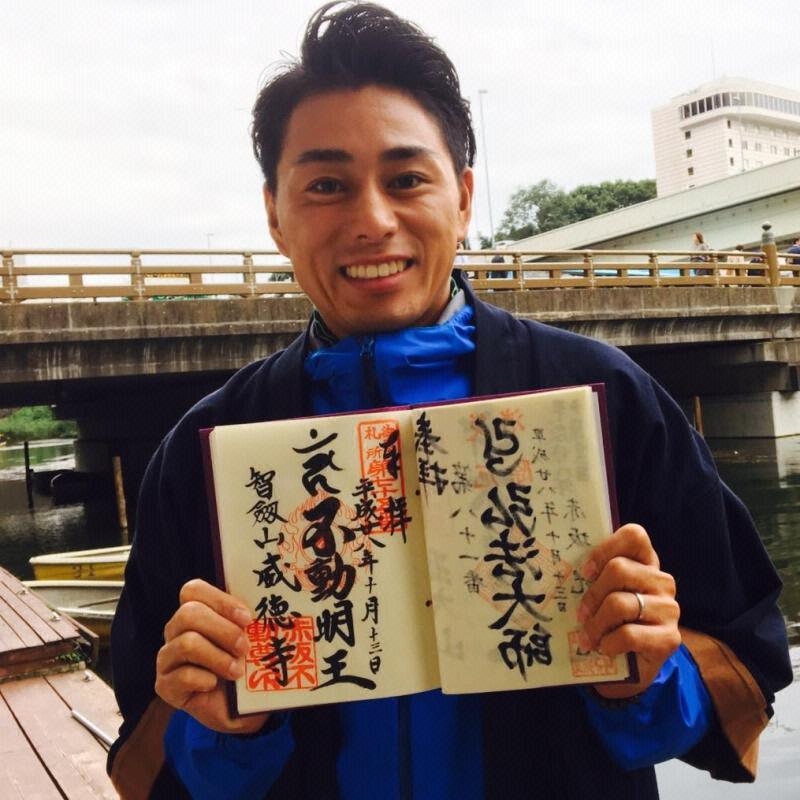 弘法大師
奉拝
第八十一番
平成廿八年十月十三日
赤坂
奉拝
札所第七十五番
平成廿八年十月十三日
不動明王
智剱山威徳寺
赤坂不動尊